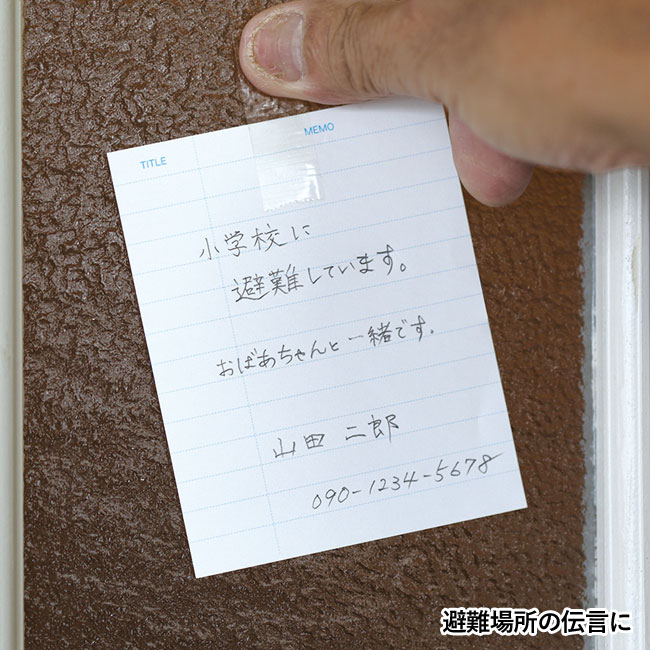 TITLE
MEMO
小学校に
避難しています。
おばあちゃんと一緒です。
山田 二郎
090-1234-5678
避難場所の伝言に